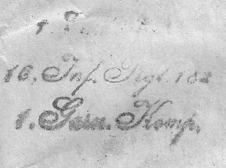 16. Inf. Rgt. 182
1. Gern. Komp.